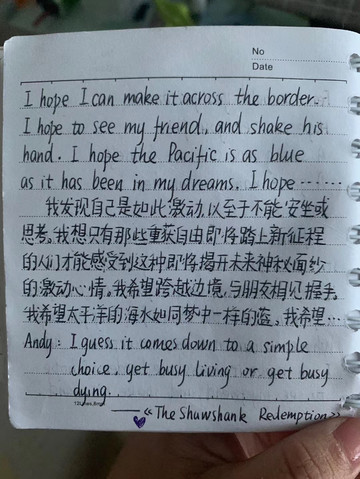 No
Date
I hope I can make it across the border.
I hope to see my friend, and shake his
hand. I hope the Pacific is as blue
as it has been in my dreams. I hope ……
我发现自己是如此激动,以至于不能安坐或
思考。我想只有那些重获自由即将踏上新征程
的人们才能感受到这种即将揭开未来神秘面纱
的激动心情。我希望跨越边境,与朋友相见握手。
我希望太平洋的海水如同梦中一样的蓝。我希望…
Andy: I guess it comes down to a simple
choice, get busy living or get busy
dying.
——《The Shawshank Redemption》